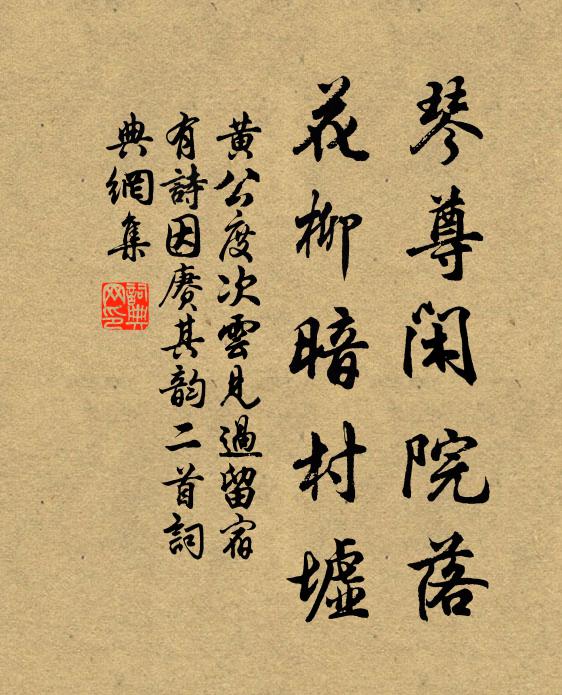 琴尊閑院落
花柳暗村墟
黄公度次雲見過留宿
有詩因賡其韵二首詞
典網集
詞典网印